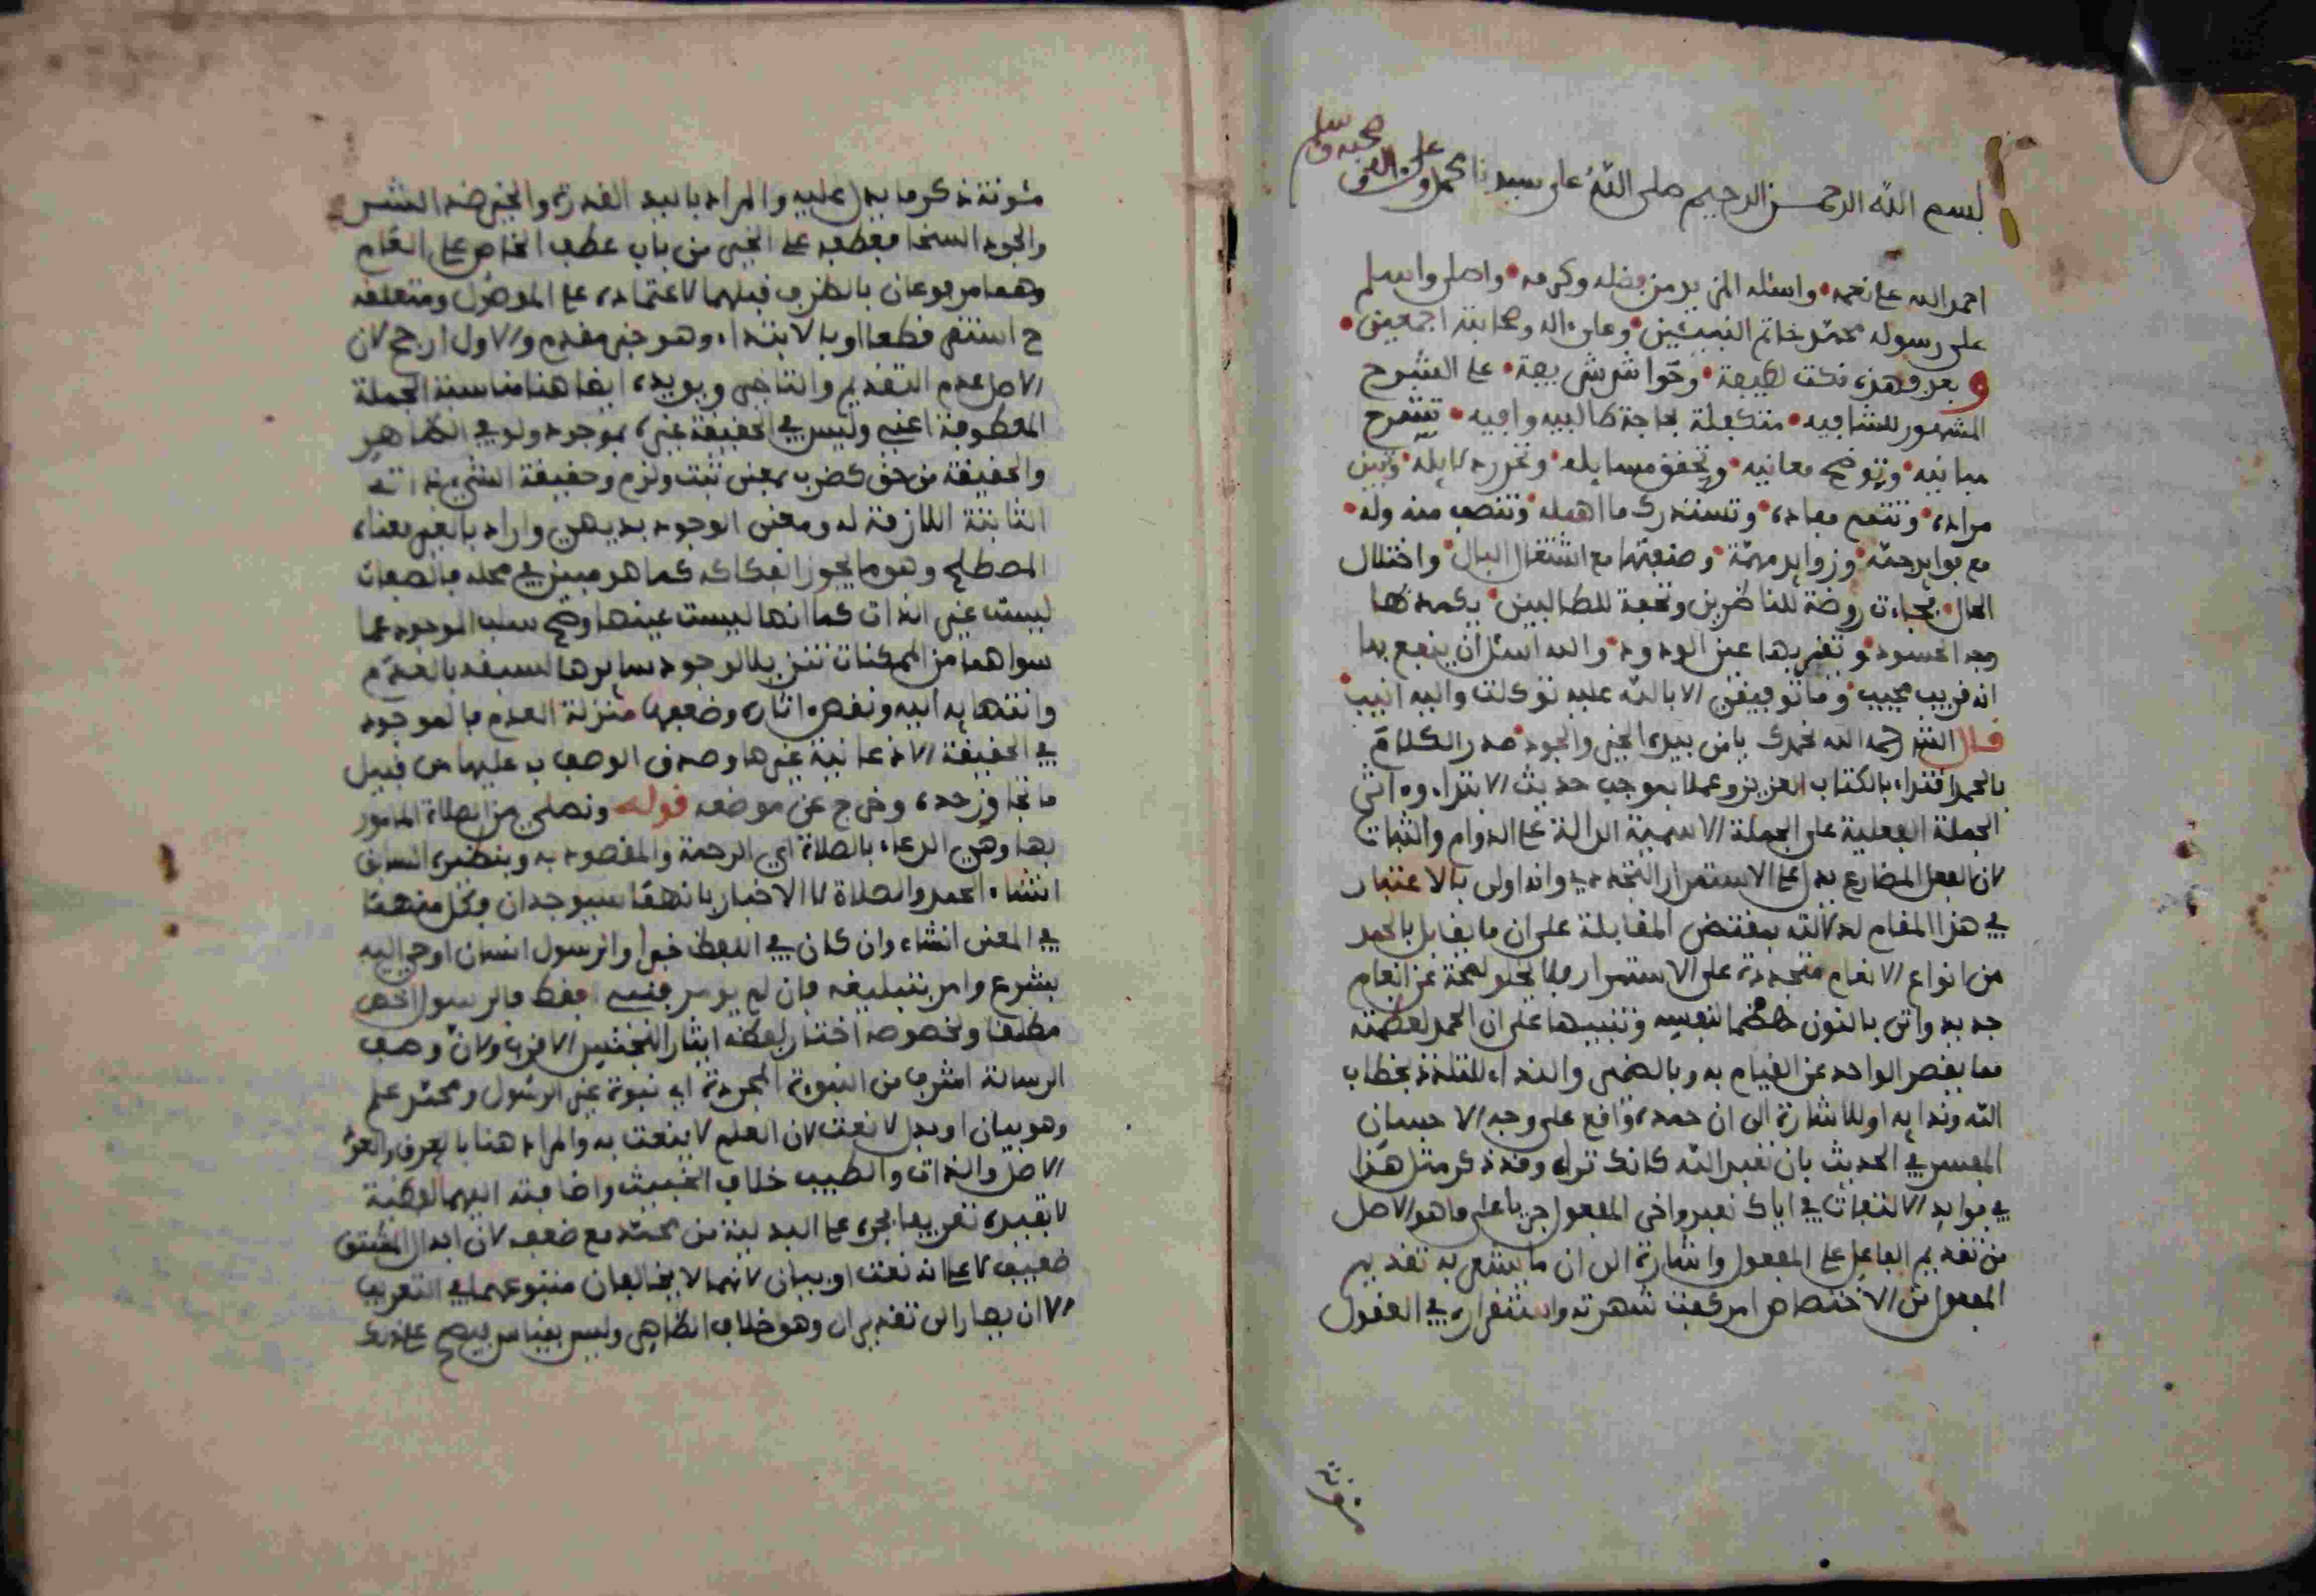 بسم الله الرحمن الرحيم صلى الله على سيدنا محمد وعلى اله وصحبه وسلم
احمد الله على نعمه واسئله المزيد من فضله وكرمه واصلي واسلم
على رسوله محمد خاتم النبيئين وعلى اله وصحابته اجمعين
وبعد فهذه نكت لطيفة وحواش شريفة على الشرح
المشهور للشافيه متكفلة بحاجة طالبيه وافيه تشرح
مبانيه وتوضح معانيه وتحقق مسايله وتحرر دلايله وتبين
مراده وتتمم مفاده وتستدرك ما اهمله وتنصف منه وله
مع فوايد جمة وزوايد مهمة وضعتها مع اشتغال البال واختلال
الحال فجاءت روضة للناظرين وتحفة للطالبين يكمد بها
وجه الحسود وتقر بها عين الودود والله اسئل ان ينفع بها
انه قريب مجيب وما توفيقي الا بالله عليه توكلت واليه انيب
قال الشر رحمه الله نحمدك يا من بيده الخير والجود صدر الكلام
بالحمد اقتداء بالكتاب العزيز وعملا بموجب حديث الابتداء وءاثر
الجملة الفعلية على الجملة الاسمية الدالة على الدوام والثبات
لان الفعل المضارع يدل على الاستمرار التجددي وانه اولى بالاعتبار
في هذا المقام لدلالته بمقتضى المقابلة على ان ما يقابل بالحمد
من انواع الانعام متجددة على الاستمرار فلا يخلو لمحة عن انعام
جديد واتى بالنون هضما لنفسه وتنبيها على ان الحمد لعظمته
مما يقصر الواحد عن القيام به وبالضمير والنداء للتلذذ بخطاب
الله وندايه او للاشارة الى ان حمده واقع على وجه الاحسان
المفسر في الحديث بان تعبد الله كانك تراه وقد ذكر مثل هذا
في فوايد الالتفات في اياك نعبد واخر المفعول جريا على ما هو الاصل
من تقديم الفاعل على المفعول واشارة الى ان ما يشعر به تقديم
المفعول من الاختصاص امر كفت شهرته واستقراره في العقول
مئونة ذكر ما يدل عليه والمراد باليد القدرة والخير ضد الشر
والجود السخا فعطفه على الخير من باب عطف الخاص على العام
وهما مرفوعان بالظرف قبلهما لاعتماده على الموصول ومتعلقه
ح استقر قطعا او بالابتداء وهو خبر مقدم والاول ارجح لان
الاصل عدم التقديم والتاخير ويويده ايضا هنا مناسبة الجملة
المعطوفة اعني وليس في الحقيقة غيره بموجود ولو في الظاهر
والحقيقة من حق كضرب بمعنى ثبت ولزم وحقيقة الشيء ذاته
الثابتة اللازمة له ومعنى الوجود بديهي واراد بالغير معناه
المصطلح وهو ما يجوز انفكاكه كما هو مبين في محله فالصفات
ليست غير الذات كما انها ليست عينها وصح سلب الوجود عما
سواهما من الممكنات تنزيلا لوجود سايرها لسبقه بالعدم
وانتهايه اليه ونقص اثاره وضعفها منزلة العدم فالموجود
في الحقيقة الا ذعانية غيرها وصدق الوصف به عليها من قبيل
ما تجاوز حده وخرج عن موضعه قوله ونصلي من الصلاة المامور
بها وهي الدعاء بالصلاة اي الرحمة والمقصود به وبنظيره السابق
انشاء الحمد والصلاة لا الاخبار بانهما سيوجدان وكل منهما
في المعنى انشاء وان كان في اللفظ خبرا والرسول انسان اوحي اليه
بشرع وامر بتبليغه فان لم يومر فنبي فقط فالرسول اخص
مطلقا ولخصوصه اختار لفظه ايثارا للتخصيص الاقرب ولان وصف
الرسالة اشرف من النبوة المجردة اي نبوة غير الرسول ومحمد علم
وهو بيان او بدل لا نعت لان العلم لا ينعت به والمراد هنا بالعرق العو
الاصل والذات والطيب خلاف الخبيث واضافته اليهما لفظية
لا تفيده تعريفا فجره على البدلية من محمد مع ضعف لان ابدال المشتق
ضعيف لا على انه نعت او بيان لانهما لا يخالفان متبوعهما في التعريف
الا ان يصار الى تقدير ال وهو خلاف الظاهر وليس بقياس فيصح على ذلك